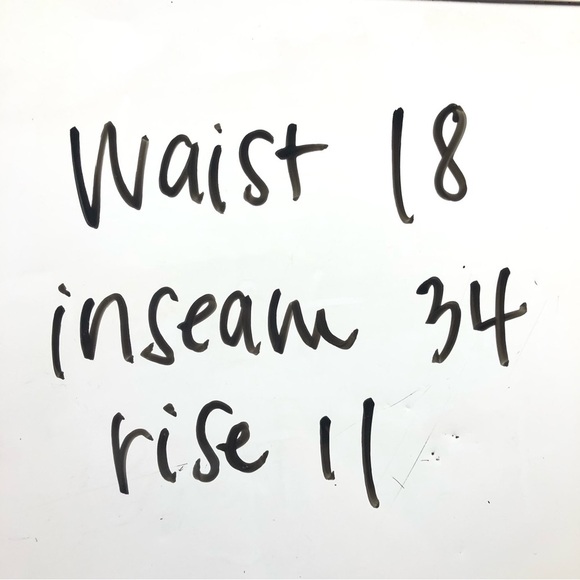 Waist 18
inseam 34
rise 11